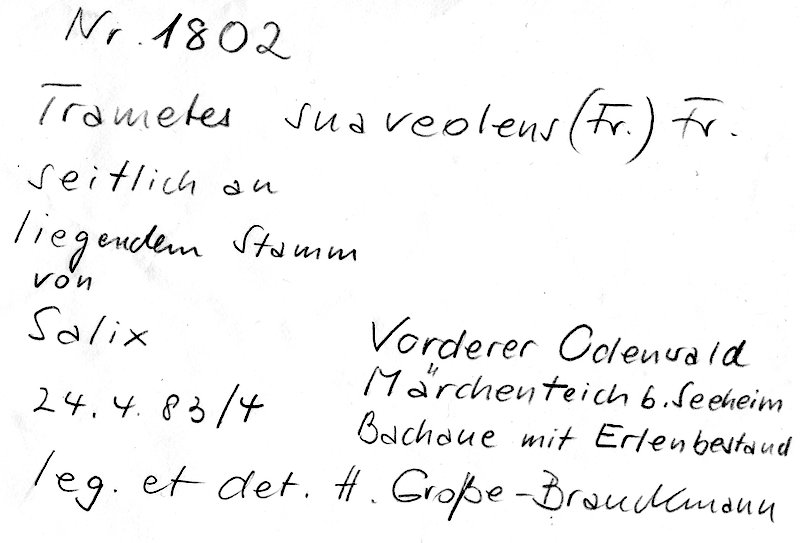 Nr. 1802
Trametes suaveolens (Fr.) Fr.
seitlich an
liegendem Stamm
von
Salix
24. 4. 83/4
Vorderer Odenwald
Märchenteich b. Seeheim
Bachaue mit Erlenbestand
leg. et det. H. Große-Brauckmann